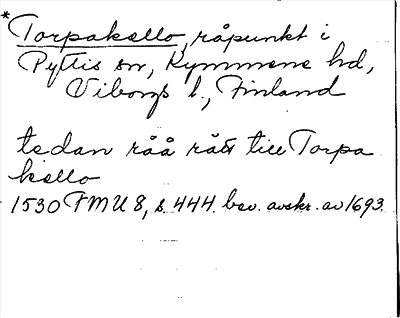 *Torpakallo, råpunkt i
Pyttis sn, Kymmene hd,
Viborgs l., Finland
tedan råå rätt till Torpa
kallo
1530 FMU 8, s. 444. bev. avskr. av 1693.